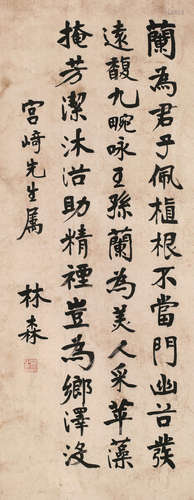 蘭為君子佩植根不當門幽谷發
遠馥九畹咏王孫蘭為美人采苹藻
掩芳潔沐浴助精禋豈為鄉澤設
宮崎先生属
林森